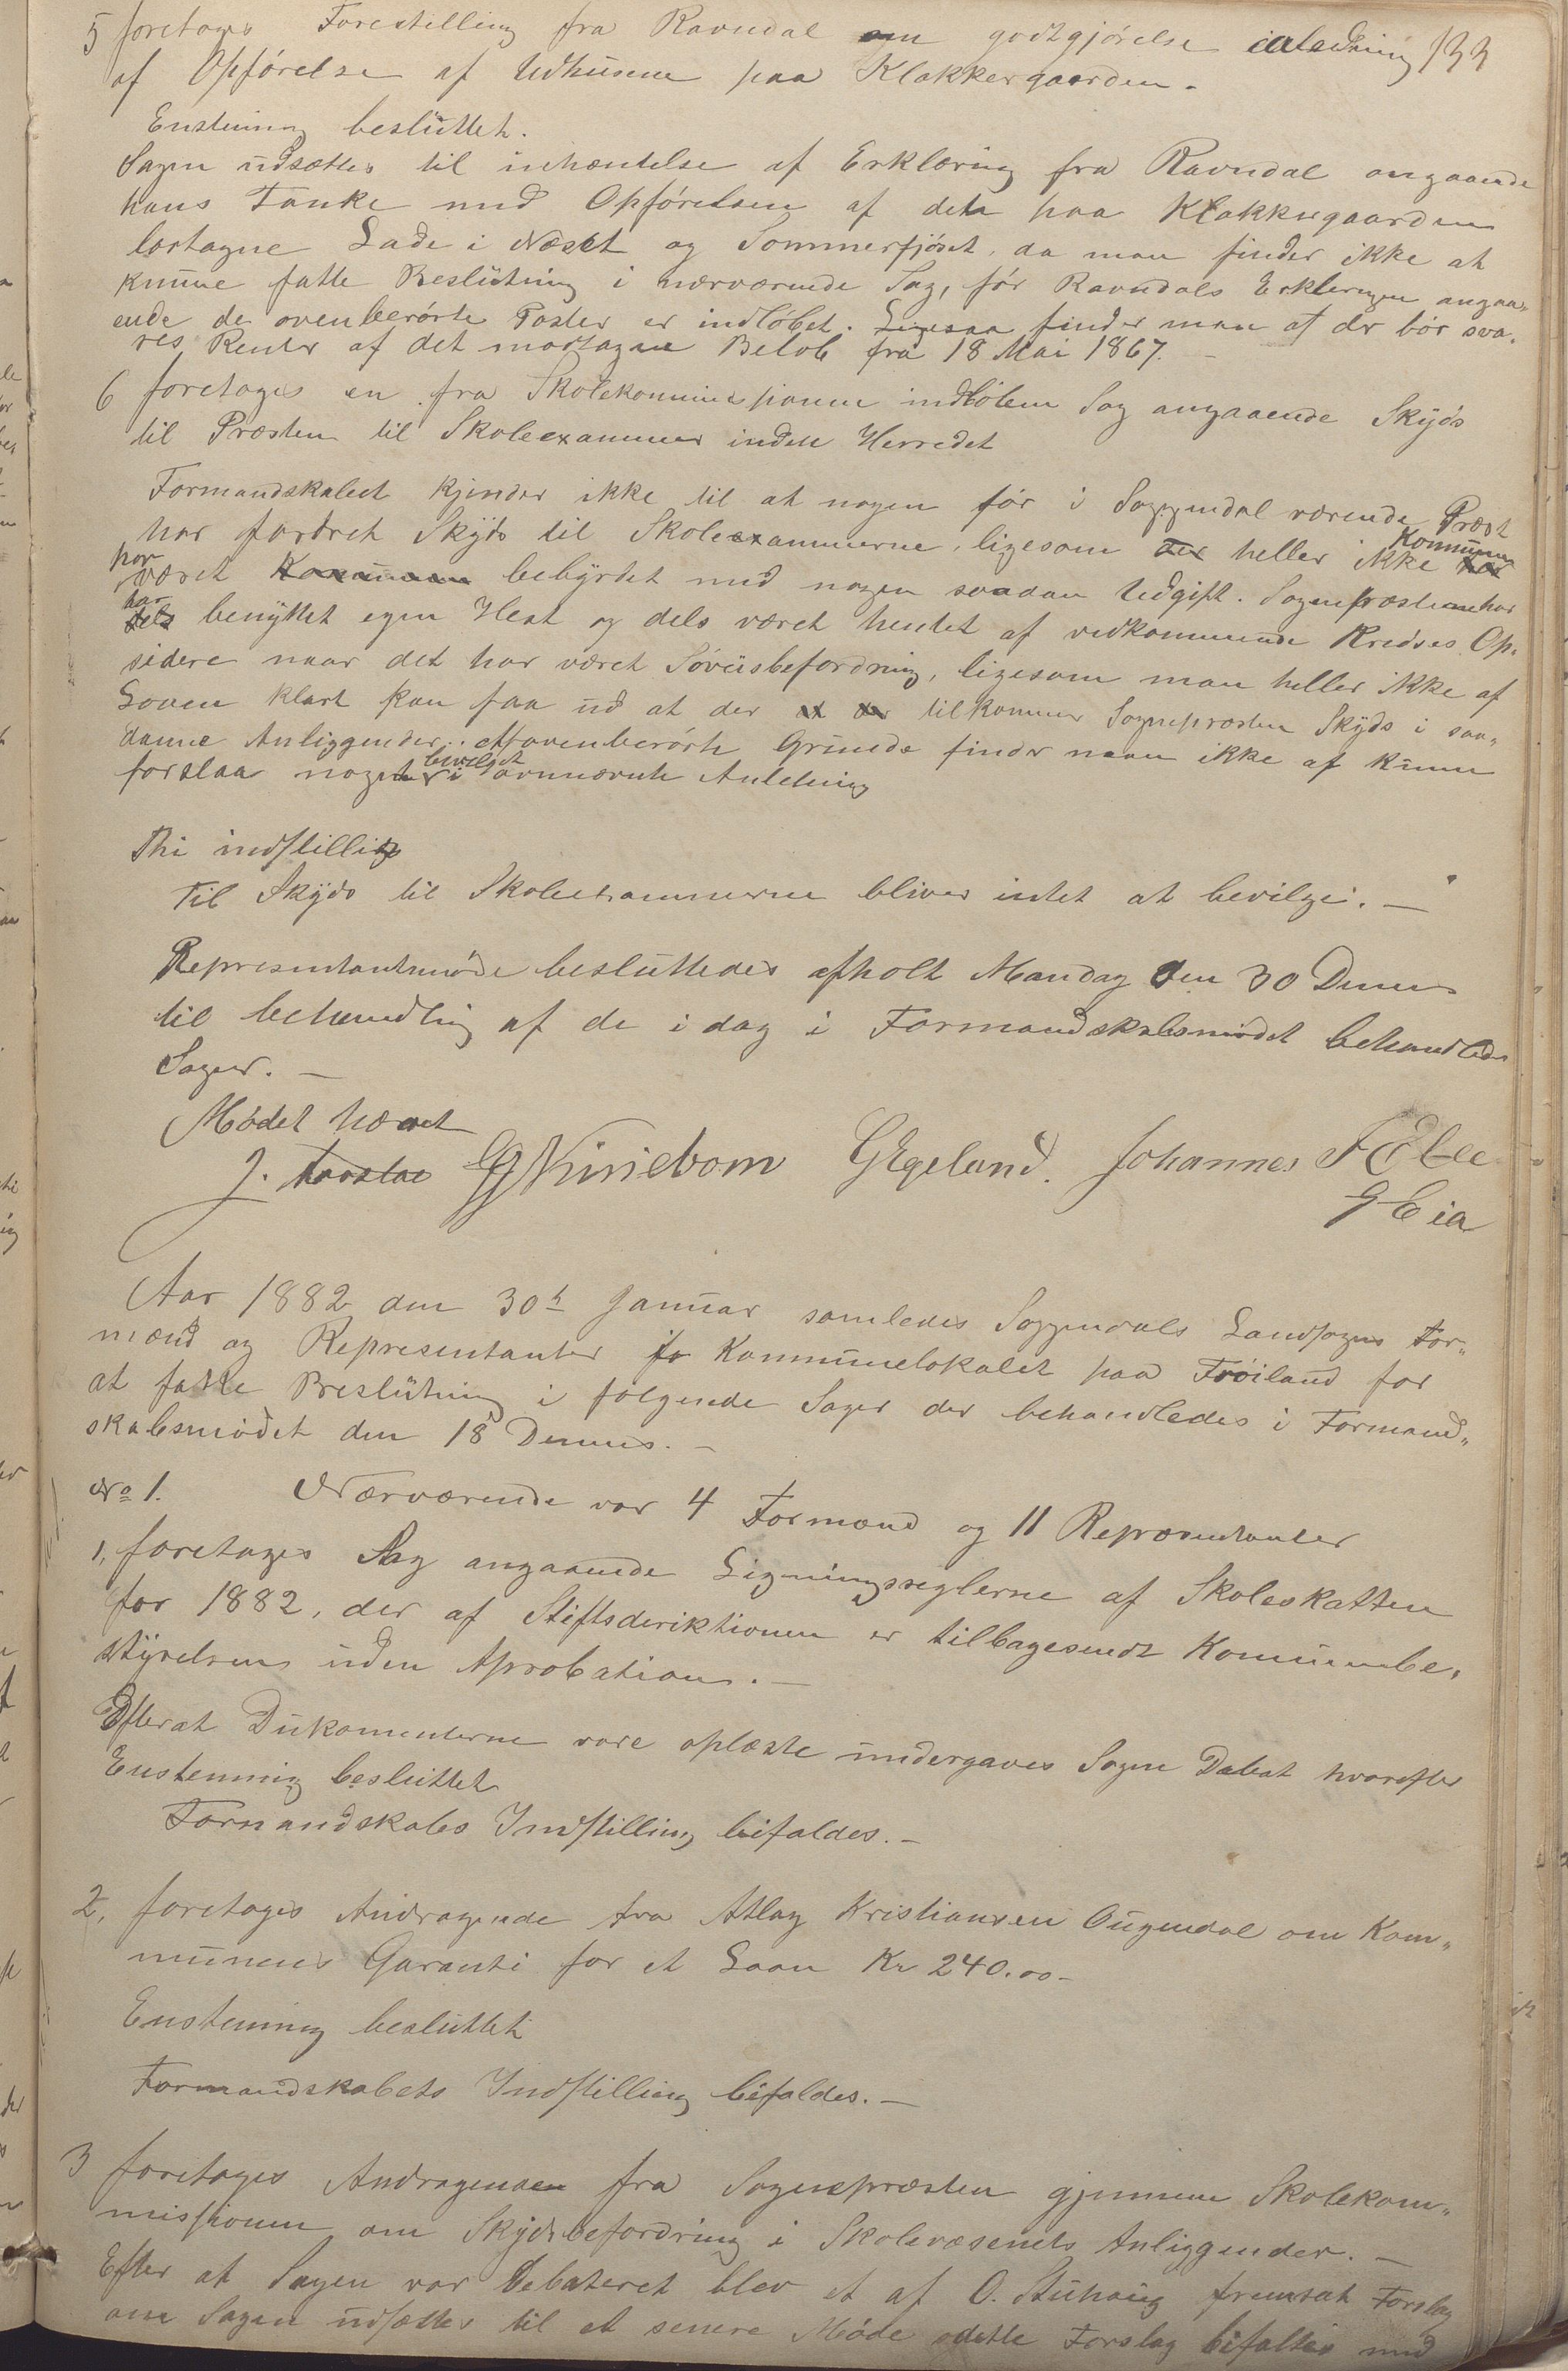 133
5 foretages Forestilling fra Ravndal om godtgjørelse i anledning
af Opførelse af Udhusene paa Klakkergaarden.
Enstemmig besluttet.
Sagen udsættes til indhæntelse af Erklæring fra Ravndal angaaende
hans Tanke med Opførelsen af den paa Klakkergaarden
bortagne Lade i Næset og Sommerfjøset, da man finder ikke at
kunne fatte Beslutning i nærværende Sag, før Ravndals Erkleringen angaa-
ende de ovenberørte Poster er indløbet. Ligesaa finder man at der bør sva-
res Renter af det modtagne Beløb fra 18 Mai 1867. -
6 foretages en fra Skolekommissionen indløben Sag angaaende Skyds
til Præsten til Skoleexammer inden Herredet
Formandskabet kjender ikke til at nogen før i Soggendal værende Præst
har fordret Skyds til Skoleexammerne, ligesom heller ikke Kommunen
har været bebyrdet med nogen saadan Udgift. Sognepræstene har
har benyttet egen Hest og dels været hentet af vedkommende Kredses Op-
sidere naar det har været Søveisbefordring, ligesom man heller ikke af
Loven klart kan faa ud at der tilkommer Sognepræsten Skyds i saa-
danne Anliggender. Af ovenberørte Grunde finder man ikke at kunne
forslaa noget bevilget i ovennævnte Anledning
Thi indstilles
Til Skyds til Skoleexammerne bliver intet at bevilge. -
Representantmøde besluttedes afholt Mandag den 30 Dennes
til behandling af de i dag i Formandskabsmødet behandlede
Sager. -
Mødet hævet
J. Taastad GGKvinebom GEgeland. Johannes TEbee
G Eia
Aar 1882 den 30te Januar samledes Soggendals Landsogns For-
mænd og Representanter i Kommunelokalet paa Frøiland for
at fatte Beslutning i følgende Sager der behandledes i Formand-
skabsmødet den 18 Dennes. -
No 1. Nærværende var 4 Formænd og 11 Repræsentanter
1, foretages Sag angaaende Ligningsreglerne af Skoleskatten
for 1882, der af Stiftsderiktionen er tilbagesendt Kommunebe-
styrelsen uden Aprobation. -
Efterat Dukomenterne vare oplæste undergaves Sagen Debat hvorefter
Enstemmig besluttet
Formandskabes Indstilling bifaldes. -
2, foretages Andragende fra Atlag Kristiansen Øugendal om Kom-
munens Garanti for et Laan Kr 240.00 -
Enstemmig besluttet
Formandskabets Indstilling bifaldes. -
3 foretages Andragenden fra Sognepræsten gjennem Skolekom-
missionen om Skydsbefordring i Skolevæsenets Anliggender. -
Efter at Sagen var Debateret blev et af O. Stuhaug fremsat Forslag
om Sagen udsættes til et senere Møde dette Forslag bifaltes med